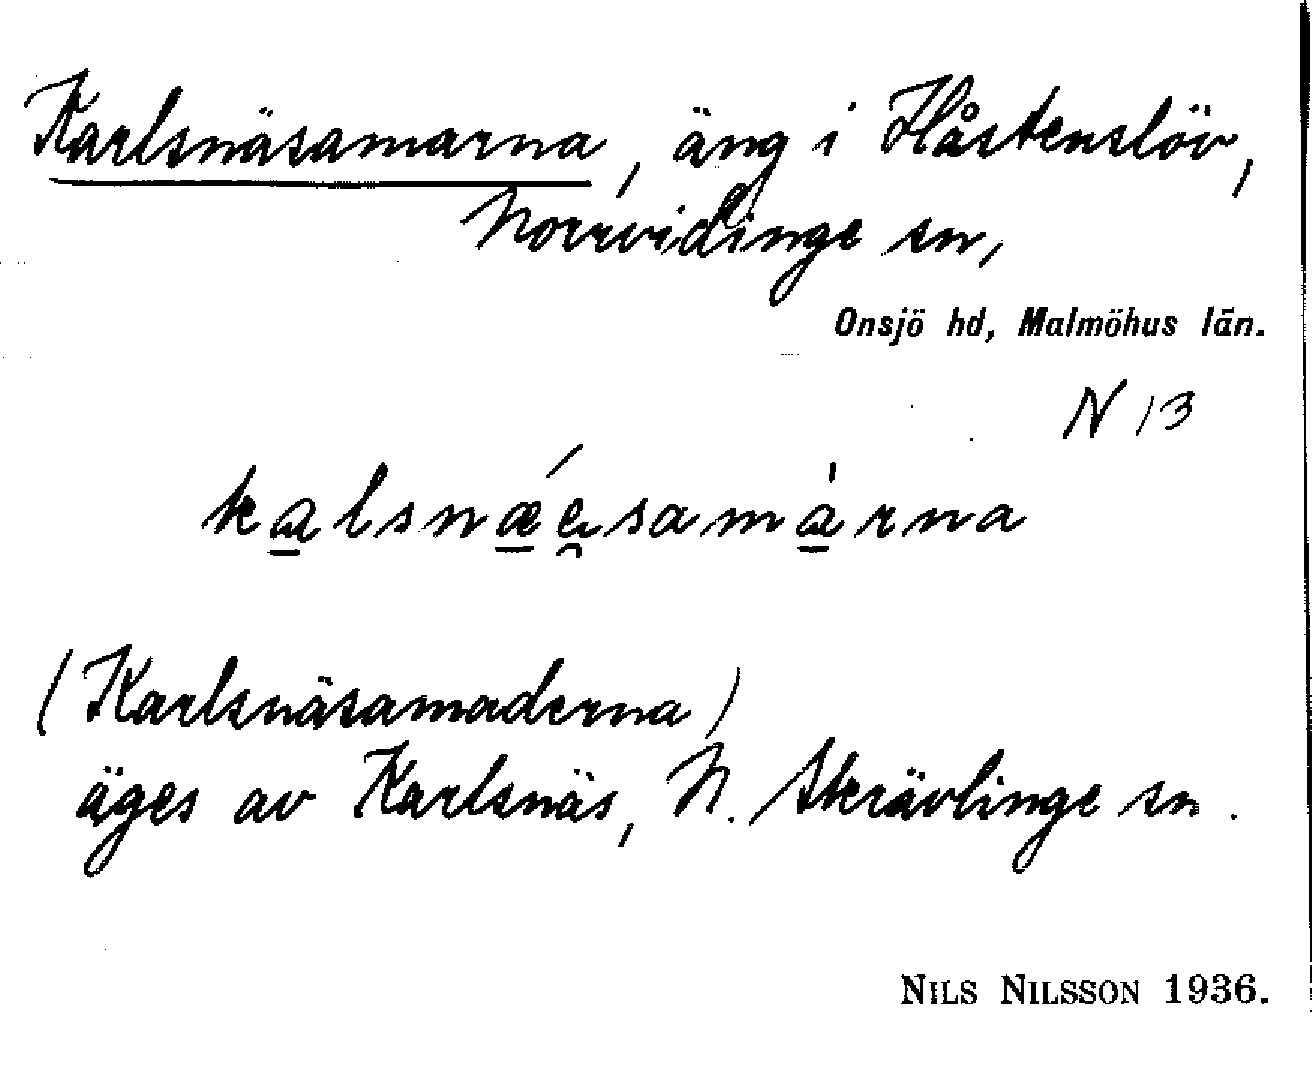 Karlsnäsamarna, äng i Håstenslöv,
Norrvidinge sn,
Onsjö hd, Malmöhus län.
N 13
ka̲lsnǽ̲e̯samà̲rna
(Karlsnäsamaderna)
äges av Karlsnäs, N. Skrävlinge sn.
NILS NILSSON 1936.